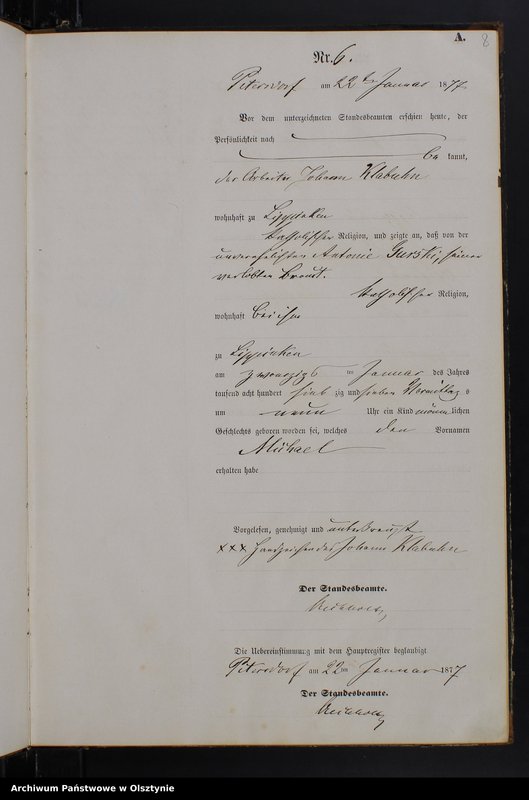 A. 8
Nr. 6.
Petersdorf am 22ten Januar 1877
Vor dem unterzeichneten Standesbeamten erschien heute, der
Persönlichkeit nach
be kannt,
der Arbeiter Johann Klabuhn
wohnhaft zu Lippinken
katholischer Religion, und zeigte an, daß von der
unverehelichten Antonie Gurski, seiner
verlobten Braut.
katholischer Religion,
wohnhaft bei ihm
zu Lippinken
am zwanzigsten Januar des Jahres
tausend acht hundert sieb zig und sieben Vormittag s
um neun Uhr ein Kind männ lichen
Geschlechts geboren worden sei, welches den Vornamen
Michael
erhalten habe
Vorgelesen, genehmigt und unterkreuzt
xxx Handzeichen des Johann Klabuhn
Der Standesbeamte.
Die Uebereinstimmung mit dem Hauptregister beglaubigt
Petersdorf am 22ten Januar 1877
Der Standesbeamte.
Archiwum Państwowe w Olsztynie